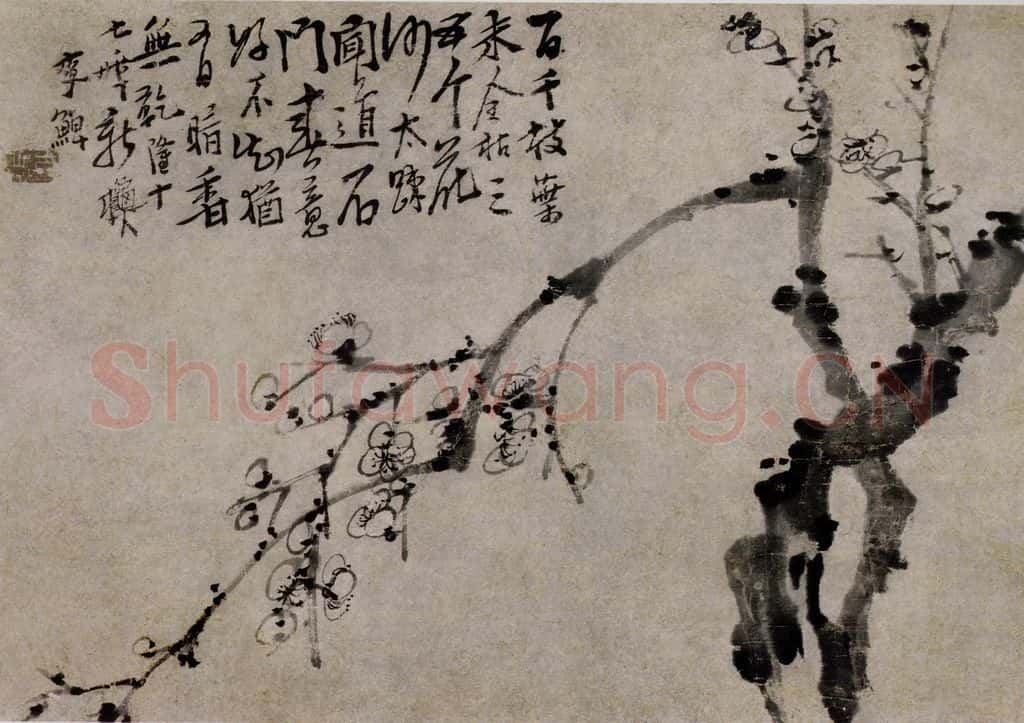 百千枝葉
未全枯三
五个花
太踈
聞道石
門春意
好不知猶
有暗香
無乾隆十
七年新
李鱓
Shufawang.CN